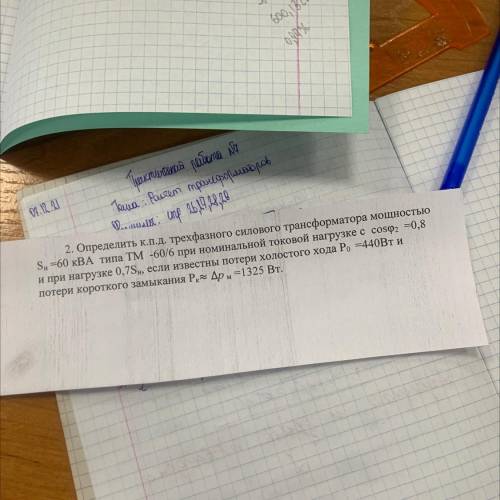 600,18
07.12.21
Практической работа №7
Тема: Расчет трансформаторов
стр 26,27,28,29
2. Определить к.п.д. трехфазного силового трансформатора мощностью
Sн =60 кВА типа ТМ -60/6 при номинальной токовой нагрузке с cosφ₂ =0,8
и при нагрузке 0,7Sн, если известны потери холостого хода P₀ =440Вт и
потери короткого замыкания Pк≈ Δp м =1325 Вт.